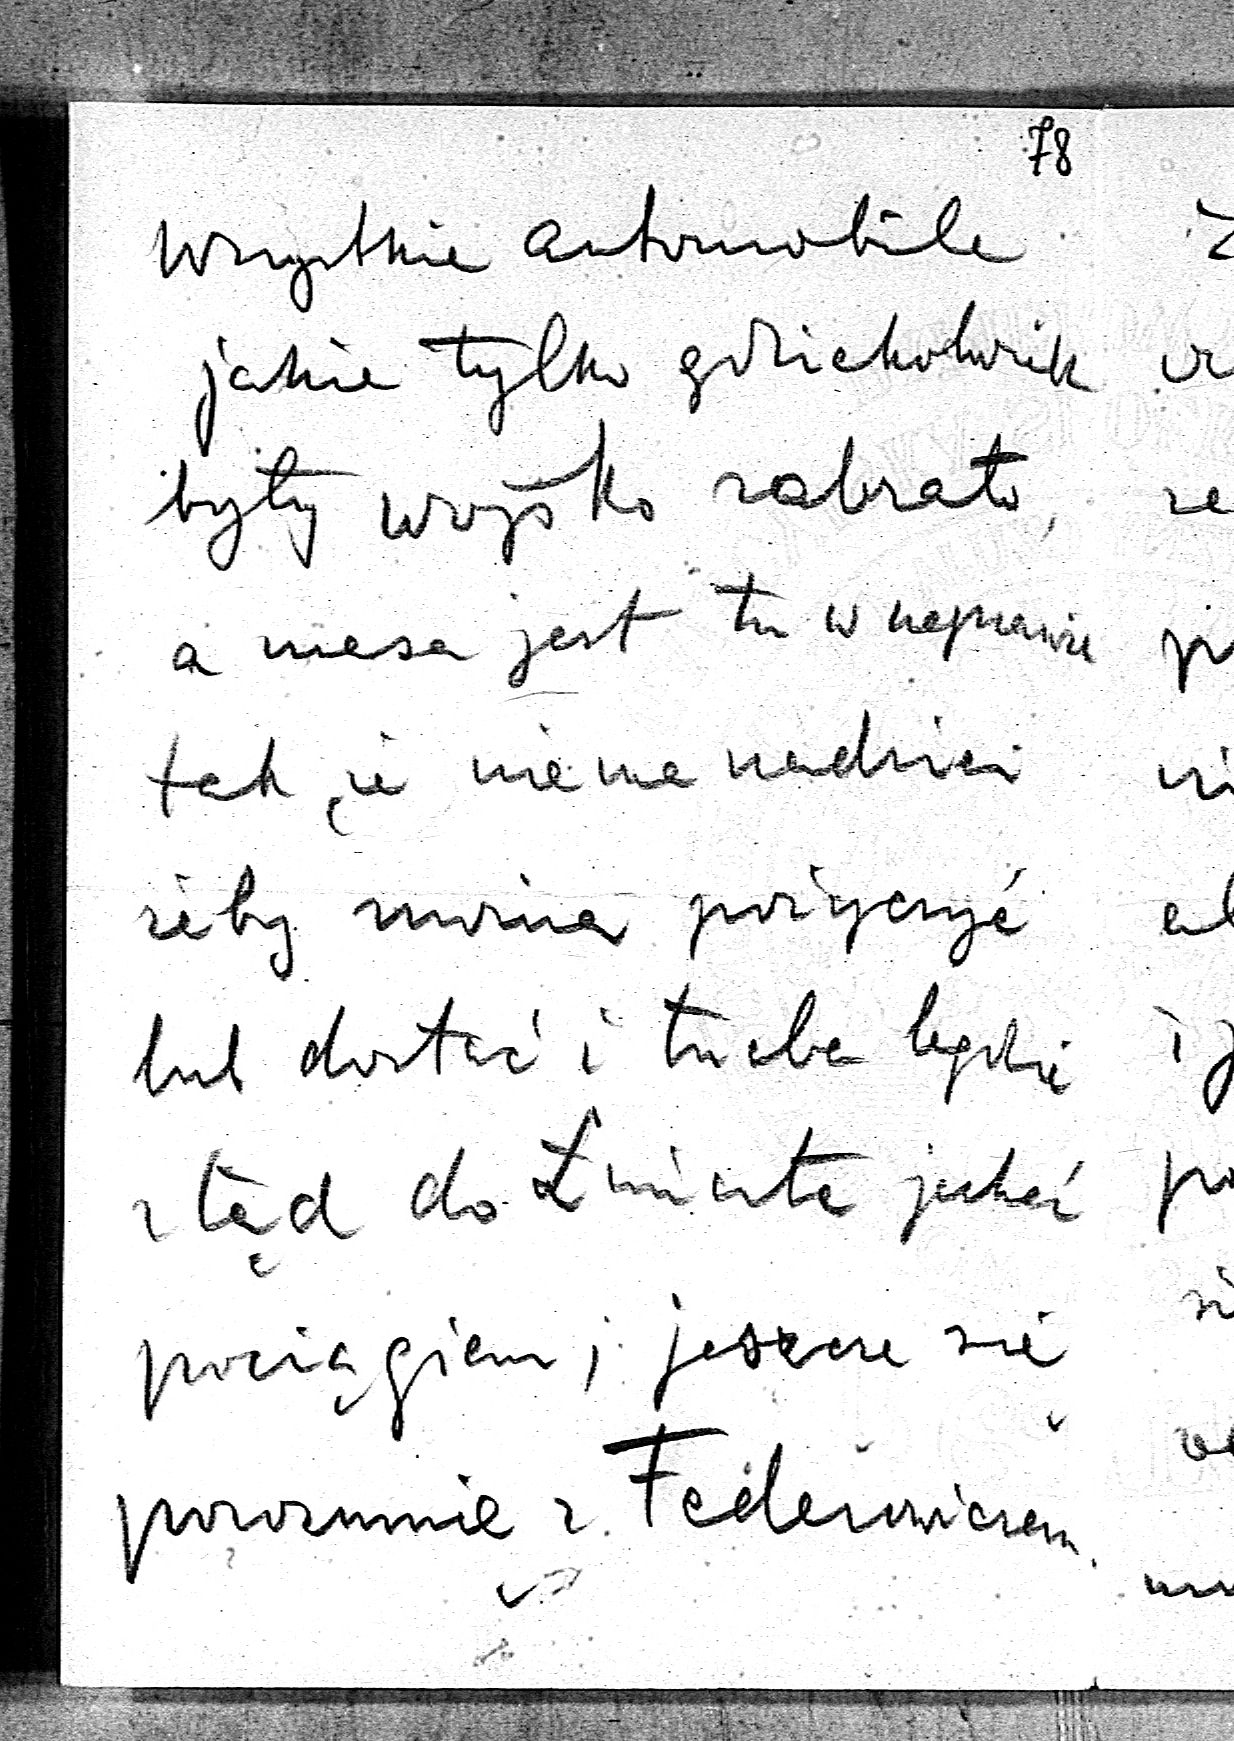 78
wszystkie automobile
jakie tylko gdziekolwiek
były wojsko zabrało,
a nasz jest tu w naprawie
tak, że niema nadziei
żeby można pożyczyć
lub dostać i trzeba będzie
ztąd do jechać
pociągiem; jeszcze się
porozumię z Federowiczem.